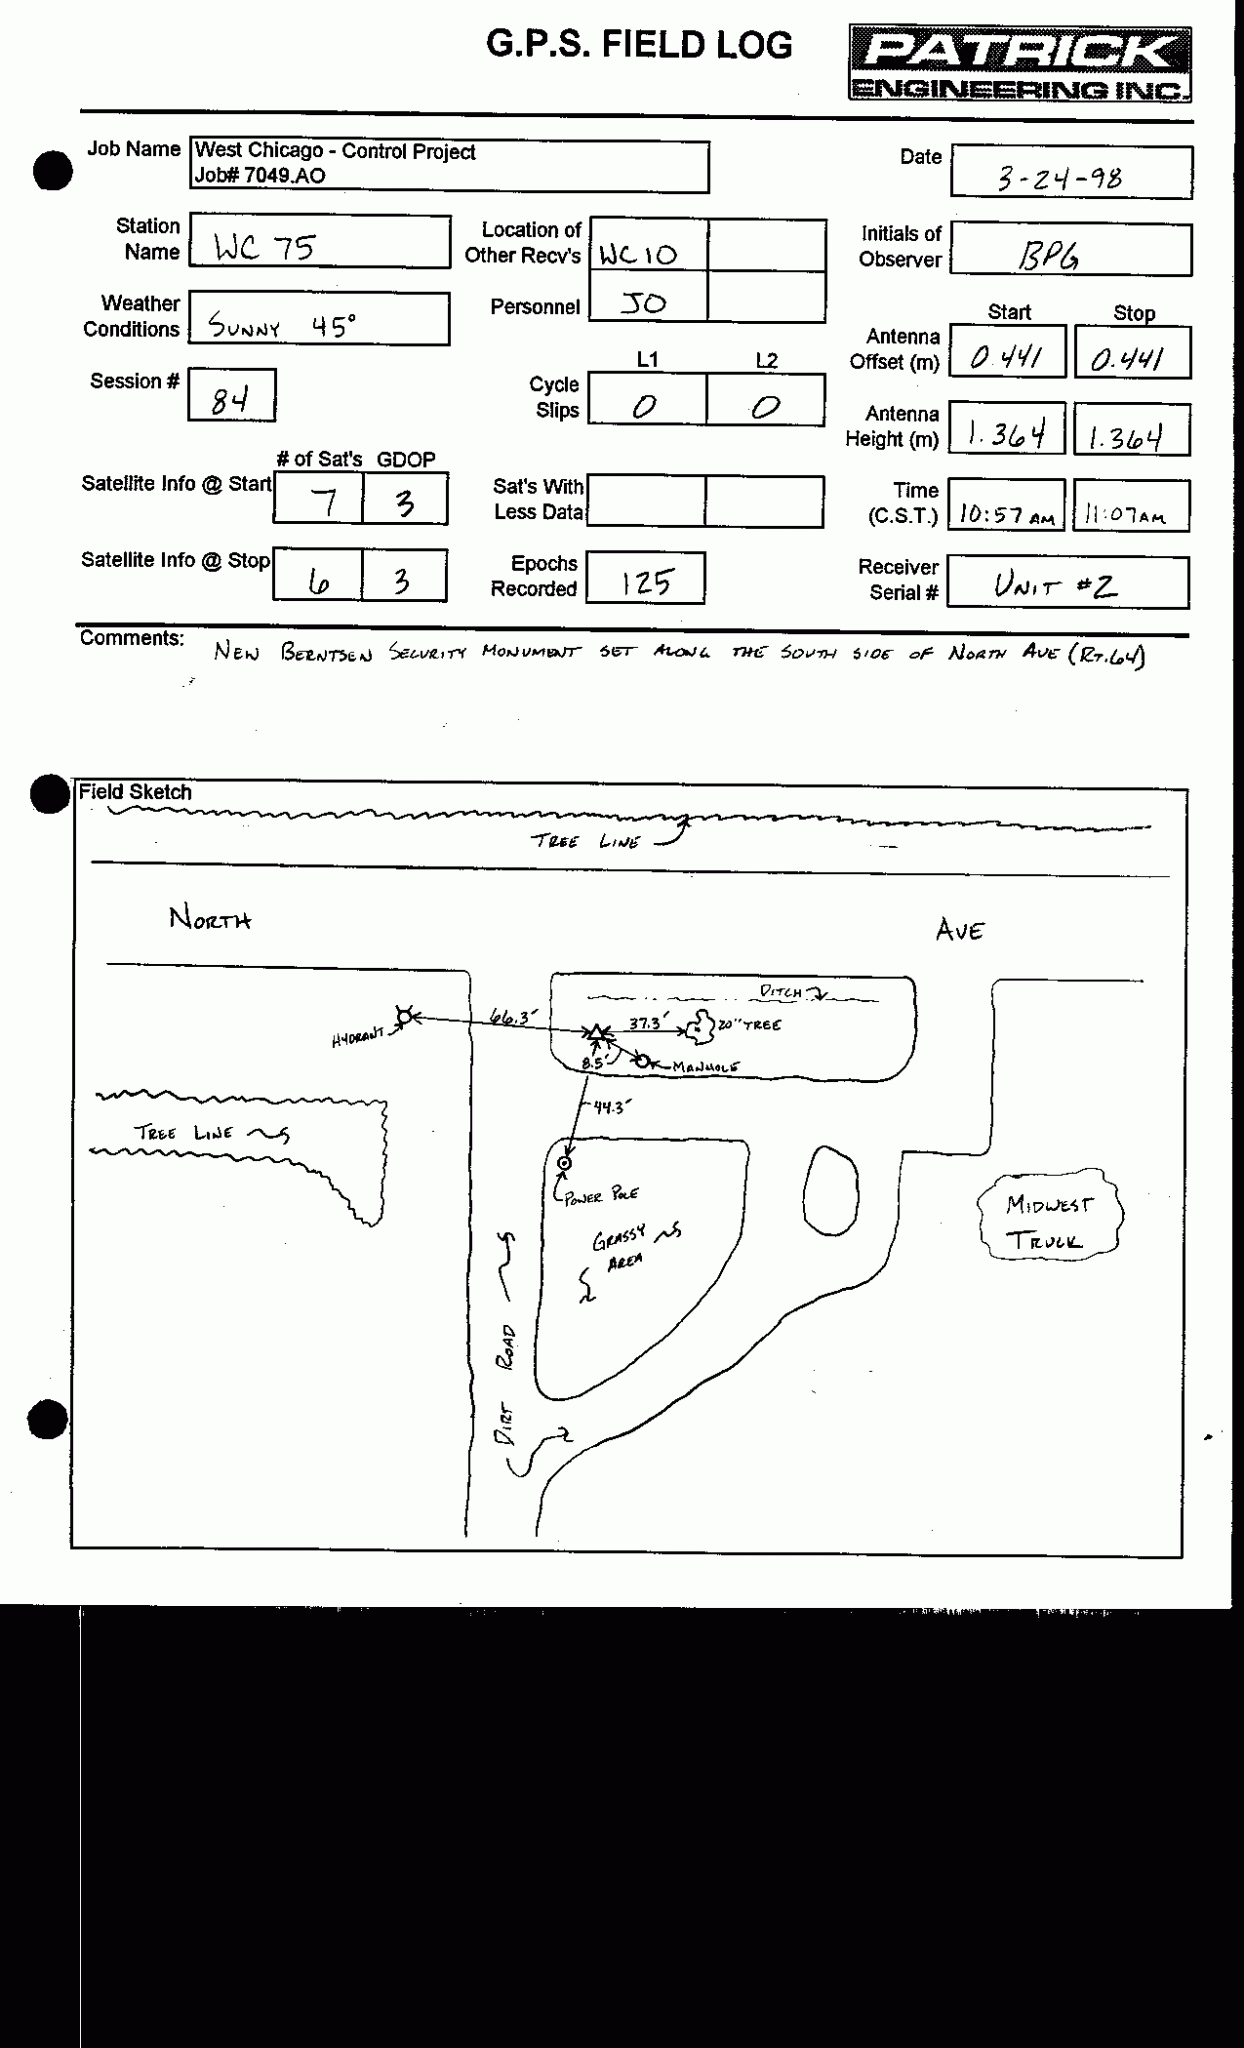 G.P.S. FIELD LOG
PATRICK
ENGINEERING INC.
Job Name West Chicago - Control Project
Job# 7049.AO
Date 3-24-98
Station Name WC 75
Location of Other Recv's WC 10
Initials of Observer BPG
Weather Conditions SUNNY 45°
Personnel JO
Start Stop
Antenna Offset (m) 0.441 0.441
Session # 84
L1 L2
Cycle Slips 0 0
Antenna Height (m) 1.364 1.364
# of Sat's GDOP
Satellite Info @ Start 7 3
Sat's With Less Data
Time (C.S.T.) 10:57 AM 11:07 AM
Satellite Info @ Stop 6 3
Epochs Recorded 125
Receiver Serial # UNIT #2
Comments: NEW BERNTSEN SECURITY MONUMENT SET ALONG THE SOUTH SIDE OF NORTH AVE (RT.64)
Field Sketch
TREE LINE
NORTH AVE
DITCH
66.3' 37.3' 20" TREE
HYDRANT
8.5' MANHOLE
44.3'
TREE LINE
POWER POLE
MIDWEST
TRUCK
GRASSY
AREA
DIRT ROAD